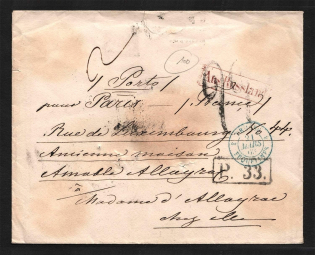 2
Aus Russland
/ Porto /
pour Paris — / France /
Rue de Luxembourg 44.
Ancienne maison
Amable Allayrac
P. 33.
Madame d'Allayrac
chez elle